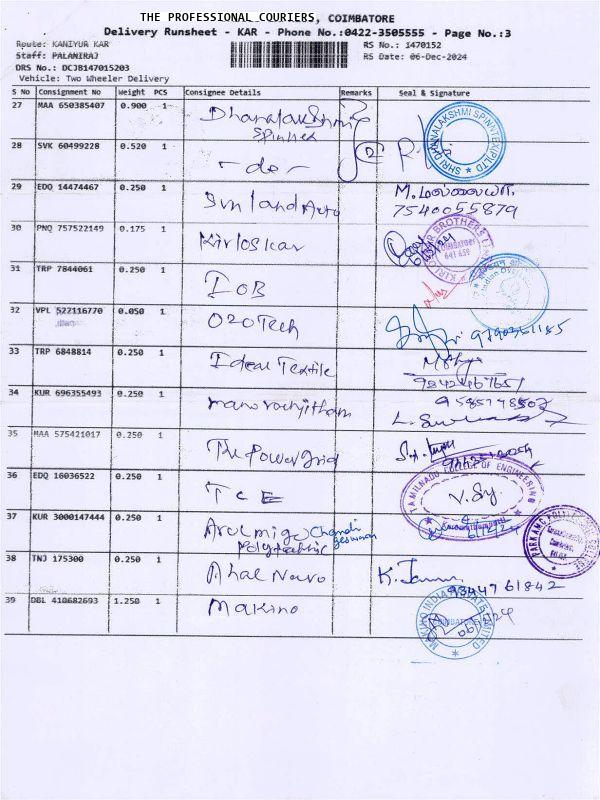 THE PROFESSIONAL COURIERS, COIMBATORE
Delivery Runsheet - KAR - Phone No.:0422-3505555 - Page No.:3
Route: KANIYUR KAR
RS No.: 1470152
Staff: PALANIRAJ
RS Date: 06-Dec-2024
DRS No.: DCJB147015203
Vehicle: Two Wheeler Delivery
S No Consignment No Weight PCS Consignee Details Remarks Seal & Signature
27 MAA 650385407 0.900 1 Dhanalakshmi
Spinners
SHRI DHANALAKSHMI SPINNTEX (P) LTD
28 SVK 60499228 0.520 1 - do -
29 EDQ 14474467 0.250 1 Sun land Auto
7540055879
30 PNQ 757522149 0.175 1 Kirloskar
641 659
31 TRP 7844061 0.250 1 IOB
32 VPL 522116770 0.050 1 O2OTech
33 TRP 6848814 0.250 1 Ideal Textile
34 KUR 696355493 0.250 1
35 MAA 575421017 0.250 1 The Power grid
36 EDQ 16036522 0.250 1 T C E
TAMILNADU COLLEGE OF ENGINEERING
V. Sy
37 KUR 3000147444 0.250 1 Arulmigu Chandi
geswarar
Polytechnic
38 TNJ 175300 0.250 1
9344761842
39 DBL 410682693 1.250 1 Makino
MAKINO INDIA PRIVATE LIMITED
COIMBATORE